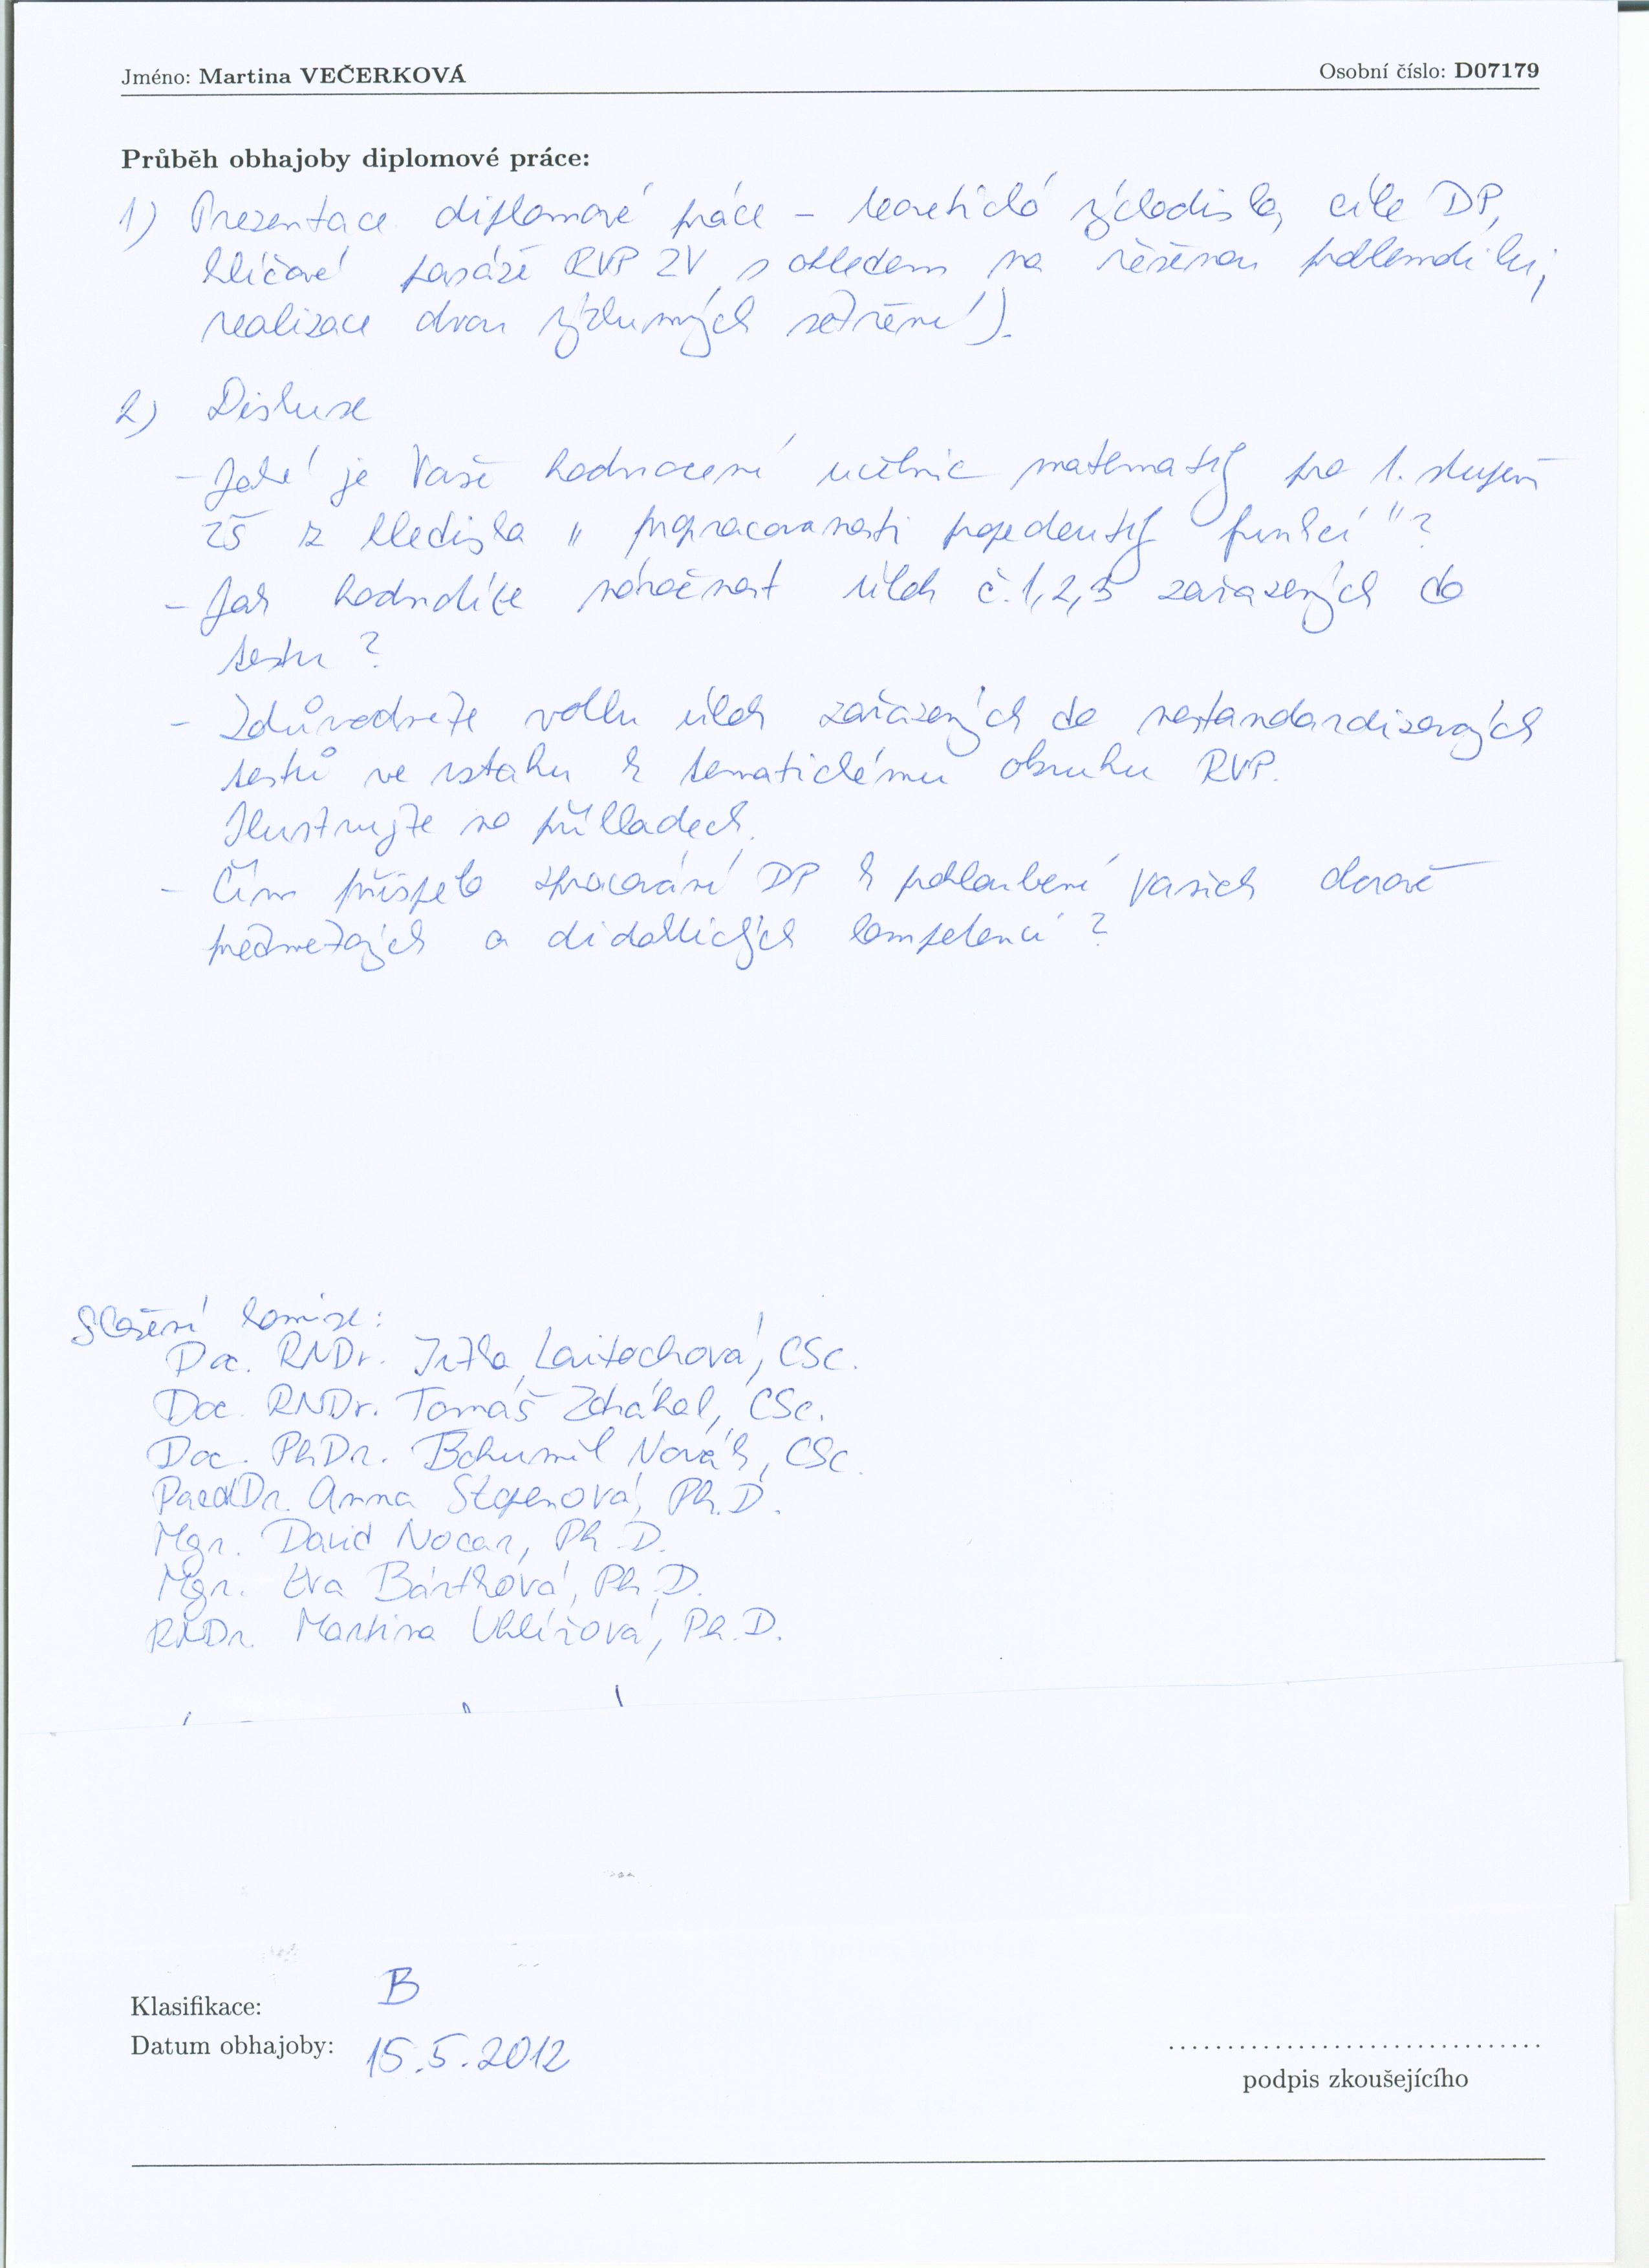 Jméno: Martina VEČERKOVÁ
Osobní číslo: D07179
Průběh obhajoby diplomové práce:
1) Prezentace diplomové práce – teoretická východiska, cíle DP,
klíčové pasáže RVP ZV s ohledem na řešenou problematiku,
realizace dvou výzkumných šetření).
2) Diskuse
– Jaké je Vaše hodnocení učebnic matematiky pro 1. stupeň
ZŠ z hlediska " propracovanosti propedeutiky funkcí " ?
– Jak hodnotíte náročnost úloh č. 1, 2, 3 zařazených do
testu ?
– Zdůvodněte volbu úloh zařazených do nestandardizovaných
testů ve vztahu k tematickému okruhu RVP.
Ilustrujte na příkladech.
– Čím přispělo zpracování DP k prohloubení vašich oborově
předmětových a didaktických kompetencí ?
Složení komise:
Doc. RNDr. Jitka Laitochová, CSc.
Doc. RNDr. Tomáš Zdráhal, CSc.
Doc. PhDr. Bohumil Novák, CSc.
PaedDr. Anna Stopenová, Ph.D.
Mgr. David Nocar, Ph.D.
Mgr. Eva Bártková, Ph.D.
RNDr. Martina Uhlířová, Ph.D.
Klasifikace: B
Datum obhajoby: 15.5.2012
podpis zkoušejícího